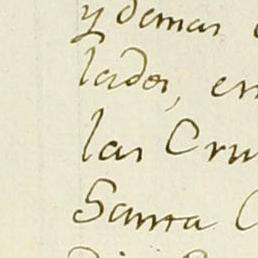 y demas
lados, en
las Cru
Santa C